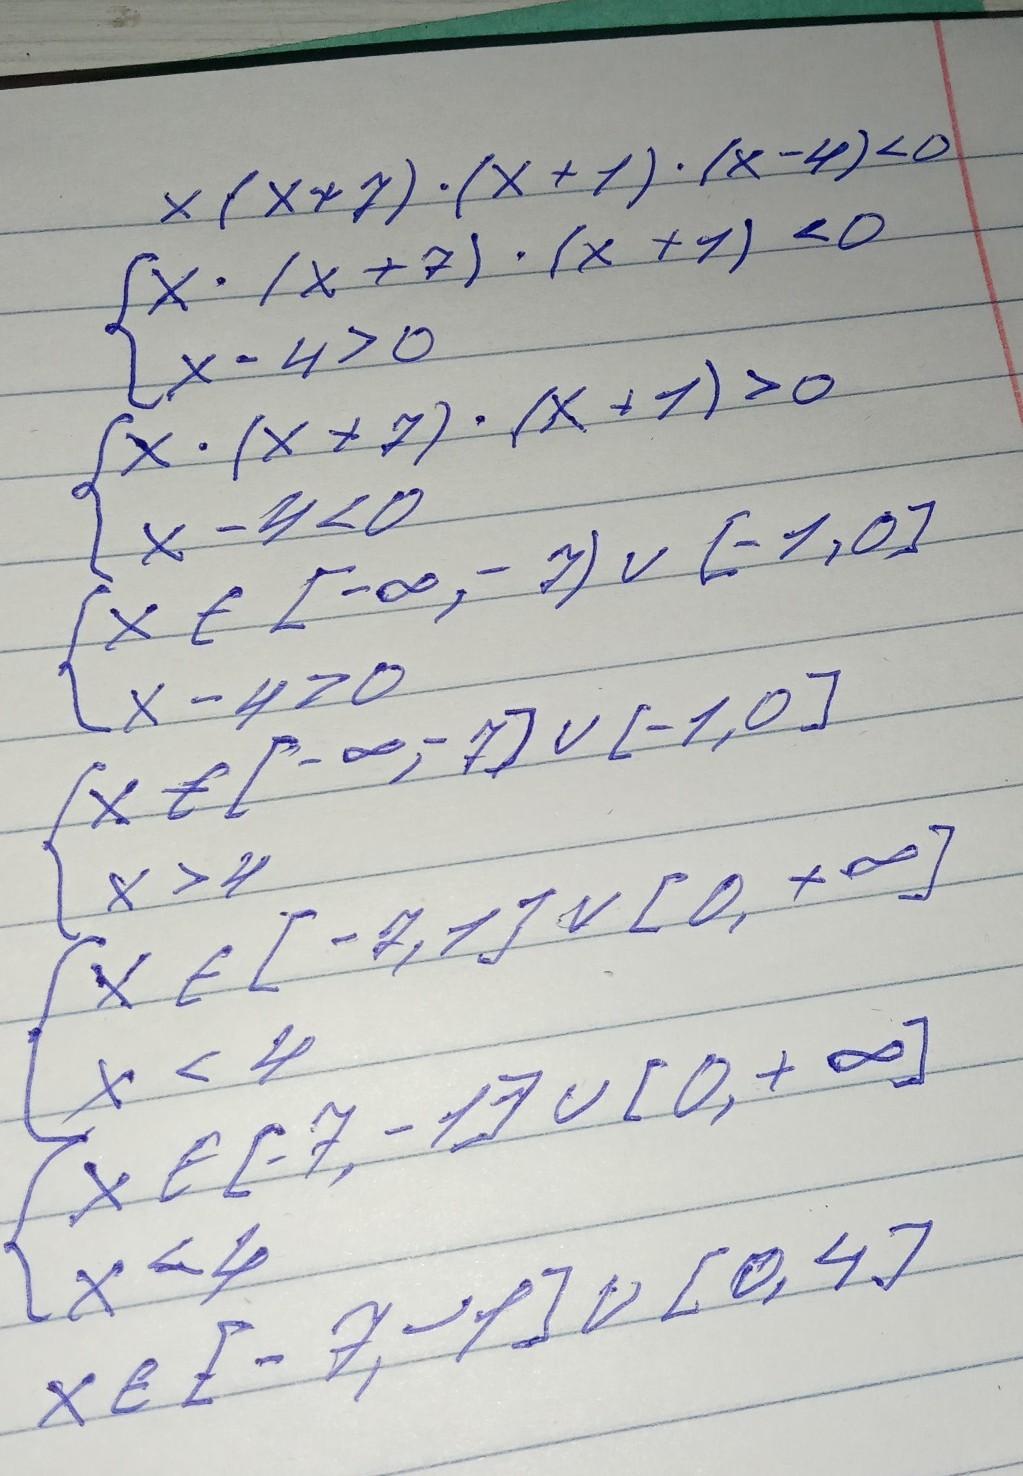 x(x+7)·(x+1)·(x-4)<0
{x·(x+7)·(x+1)<0
x-4>0
{x·(x+7)·(x+1)>0
x-4<0
{x∈[-∞,-7)∪[-1,0]
x-4>0
{x∈[-∞,-7]∪[-1,0]
x>4
{x∈[-7,1]∪[0,+∞]
x<4
{x∈[-7,-1]∪[0,+∞]
x<4
x∈[-7,-1]∪[0,4]